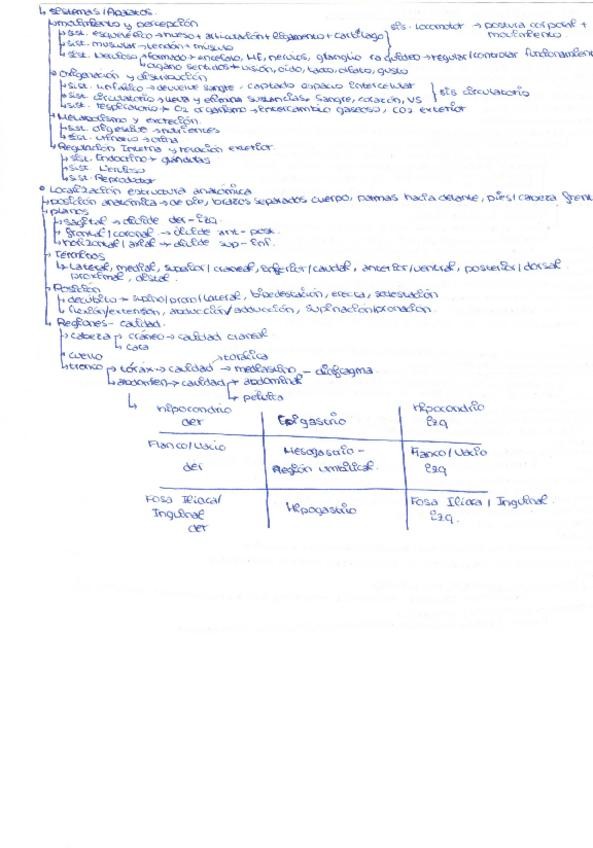 ↳ Sistemas / Aparatos.
↳ Movimiento y percepción
↳ Sist. esquelético → hueso + articulación + ligamento + cartílago } Sis. Locomotor → postura corporal + movimiento
↳ Sist. muscular → tendón + músculo
↳ Sist. Nervioso ↳ formado → encéfalo, ME, nervios, ganglio raquídeo → regular/controlar
↳ órgano sentidos → visión, oído, tacto, olfato, gusto
↳ Organización y distribución
↳ Sist. linfático → devuelve sangre, captado espacio intercelular } Sis circulatorio
↳ Sist. circulatorio → lleva y elimina sustancias → sangre, corazón, VS
↳ Sist. respiratorio → O2 organismo → intercambio gaseoso, CO2 exterior
↳ Metabolismo y excreción.
↳ Sist. digestivo → nutrientes
↳ Sist. urinario → orina
↳ Regulación Interna y relación exterior.
↳ Sist. Endocrino → glándulas
↳ Sist. Nervioso
↳ Sist. Reproductor
• Localización estructura anatómica
↳ posición anatómica → de pie, brazos separados cuerpo, palmas hacia delante, pies/cabeza
↳ planos
↳ sagital → divide der-izq.
↳ frontal/coronal → divide ant-post.
↳ horizontal/axial → divide sup-inf.
↳ Términos
↳ Lateral, medial, superior/craneal, inferior/caudal, anterior/ventral, posterior/dorsal
proximal, distal.
↳ Posición
↳ decúbito → supino/prono/lateral, bipedestación, erecta, sedestación
↳ flexión/extensión, abducción/adducción, supinación/pronación.
↳ Regiones - cavidad.
↳ cabeza ↳ cráneo → cavidad craneal.
↳ cara
↳ cuello
↳ tronco ↳ tórax → cavidad → torácica
→ mediastino – diafragma
↳ abdomen → cavidad ↳ abdominal
↳ pélvica
↳ Hipocondrio der | Epigastrio | Hipocondrio Izq
Flanco/Vacio der | Mesogastrio - Región umbilical. | Flanco/Vacio Izq
Fosa Iliaca/ Inguinal der | Hipogastrio | Fosa Iliaca / Inguinal. Izq.